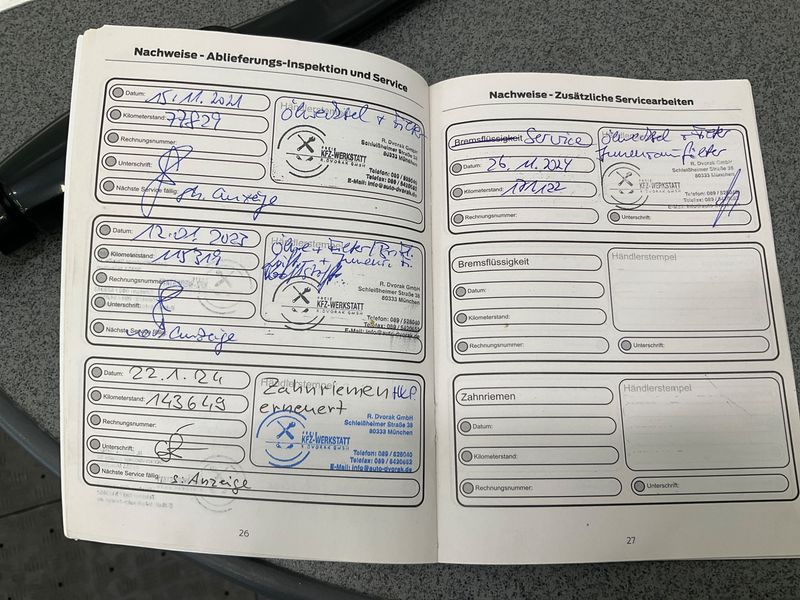 Nachweise - Ablieferungs-Inspektion und Service
Datum: 15.11.2021
Kilometerstand: 77829
Rechnungsnummer:
Unterschrift:
Nächste Service fällig: Anzeige
Händlerstempel
Ölwechsel + Filter
FREIE
KFZ-WERKSTATT
R. DVORAK GMBH
R. Dvorak GmbH
Schleißheimer Straße 38
80333 München
Telefon: 089 / 528040
Telefax: 089 / 5420653
E-Mail: info@auto-dvorak.de
Datum: 12.01.2023
Kilometerstand: 115319
Rechnungsnummer:
Unterschrift:
Nächste Service fällig: Anzeige
Händlerstempel
FREIE
KFZ-WERKSTATT
R. DVORAK GMBH
R. Dvorak GmbH
Schleißheimer Straße 38
80333 München
Telefon: 089 / 528040
Telefax: 089 / 5420653
E-Mail: info@auto-dvorak.de
Datum: 22.1.24
Kilometerstand: 143649
Rechnungsnummer:
Unterschrift:
Nächste Service fällig: s. Anzeige
Händlerstempel
Zahnriemen
erneuert
FREIE
KFZ-WERKSTATT
R. DVORAK GMBH
R. Dvorak GmbH
Schleißheimer Straße 38
80333 München
Telefon: 089 / 528040
Telefax: 089 / 5420653
E-Mail: info@auto-dvorak.de
26
Nachweise - Zusätzliche Servicearbeiten
Bremsflüssigkeit Service
Datum: 26.11.2024
Kilometerstand:
Rechnungsnummer:
Händlerstempel
Ölwechsel + Filter
Innenraumfilter
FREIE
KFZ-WERKSTATT
R. DVORAK GMBH
R. Dvorak GmbH
Schleißheimer Straße 38
80333 München
Unterschrift:
Bremsflüssigkeit
Datum:
Kilometerstand:
Rechnungsnummer:
Händlerstempel
Unterschrift:
Zahnriemen
Datum:
Kilometerstand:
Rechnungsnummer:
Händlerstempel
Unterschrift:
27